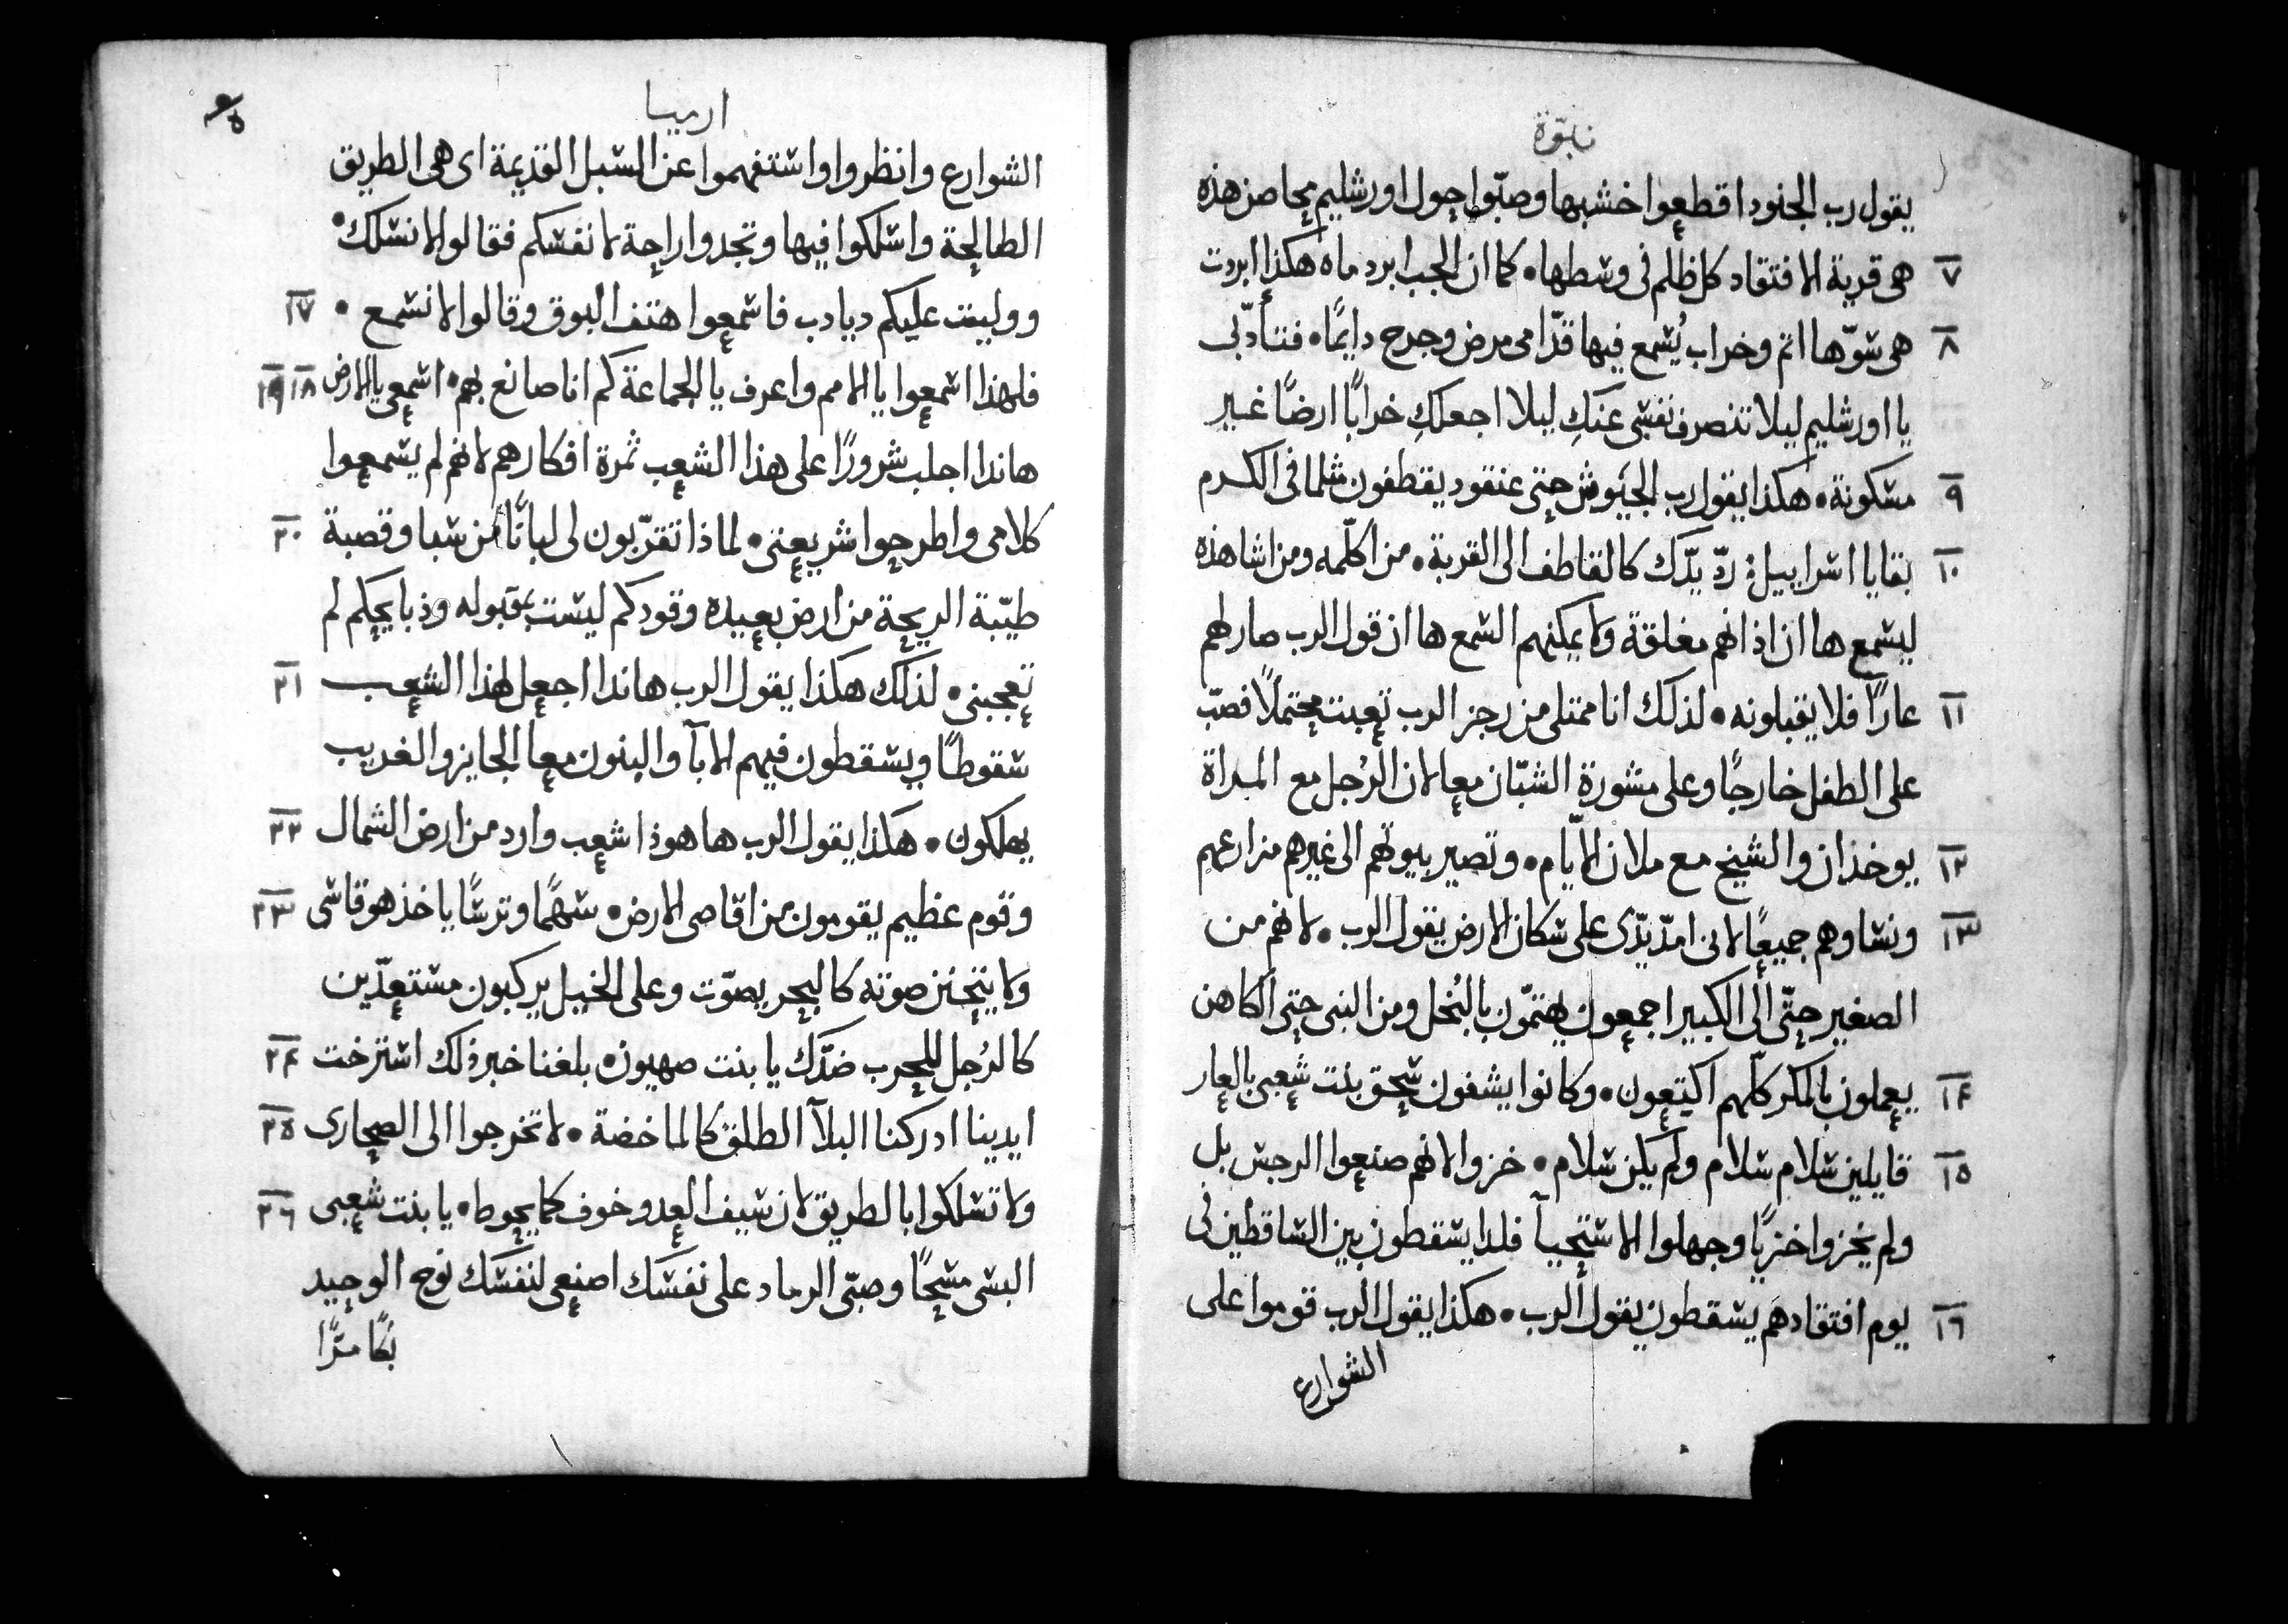 نبوّة
يقول رب الجنود اقطعوا خشبها وصبّوا حول اورشليم محاصن هذه
٧ هى قرية الافتقاد كل ظلم فى وسطها • كما ان الجب ابرد ماه هكذا ابردت
٨ هى سوّها اثم وخراب يُسمع فيها قدّامى مرض وجرح دايمًا • فتأدّبى
يا اورشليم ليلا تنصرف نفسى عنكِ ليلا اجعلكِ خرابًا ارضًا غير
٩ مسكونة • هكذا يقول رب الجيوش حتى عنقود يقطفون مثلما فى الكرم
١٠ بقايا اسراييل: ردّ يدّك كالقاطف الى القربة • من اكلّمه ومن اشاهده
ليسمع ها ان اذانهم مغلقة ولا يمكنهم السمع ها ان قول الرب صار لهم
١١ عارًا فلا يقبلونه • لذلك انا ممتلى من رجز الرب تعبت محتملًا فصبّ
على الطفل خارجًا وعلى مشورة الشبّان معا لان الرُجل مع المراة
١٢ يوخذان والشيخ مع ملان الايّام • وتصير بيوتهم الى غيرهم مزارعهم
١٣ ونساوهم جميعًا لانى امدّ يدّى على سكان الارض يقول الرب • لانهم من
الصغير حتّى الى الكبير اجمعون يهتمّون بالبُخل ومن النبى حتى الكاهن
١٤ يعملون بالمكر كلّهم اكتعون • وكانوا يشفون سحق بنت شعبى بالعار
١٥ قايلين سلام سلام ولم يكن سلام • خزوا لانهم صنعوا الرجس بل
ولم يخزوا خزيًا وجهلوا الاستحيآ فلذا يسقطون بين الساقطين فى
١٦ يوم افتقادهم يسقطون يقول الرب • هكذا يقول الرب قوموا على
الشوارع
ارميا
الشوارع وانظروا واستفهموا عن السبل القديمة اى هى الطريق
الصالحة واسلكوا فيها وتجدوا راحة لانفسكم فقالوا لا نسلك •
١٧ ووليت عليكم ديادب فاسمعوا هتف البوق وقالوا لا نسمع •
١٨ ١٩ فلهذا اسمعوا يا الامم واعرف يا الجماعة كم انا صانع بهم • اسمعى يا الارض
هاندا اجلب شرورًا على هذا الشعب ثمرة افكارهم لانهم لم يسمعوا
٢٠ كلامى واطرحوا شريعتى • لماذا تقرّبون لى لبانًا من سبا وقصبة
طيّبة الريحة من ارض بعيده وقودكم ليست بمقبوله وذبايحكم لم
٢١ تعجبنى • لذلك هكذا يقول الرب هاندا اجعل لهذا الشعب
سقوطًا ويسقطون فيهم الابآ والبنون معا الجايز والغريب
٢٢ يهلكون • هكذا يقول الرب ها هوذا شعب وارد من ارض الشمال
٢٣ وقوم عظيم يقومون من اقاصى الارض • سهمًا وترسًا ياخذ هو قاسى
ولا يتحنن صوته كالبحر يصوّت وعلى الخيل يركبون مستعدّين
٢٤ كالرُجل للحرب ضدّك يا بنت صهيون • بلغنا خبر ذلك استرخت
٢٥ ايدينا ادركنا البلآ الطلق كالماخضة • لا تخرجوا الى الصحارى
٢٦ ولا تسلكوا بالطريق لان سيف العدو خوف كما يحوط • يا بنت شعبى
البسى مسحًا وصبّى الرماد على نفسك اصنعى لنفسك نوح الوحيد
بكًا مرًّا